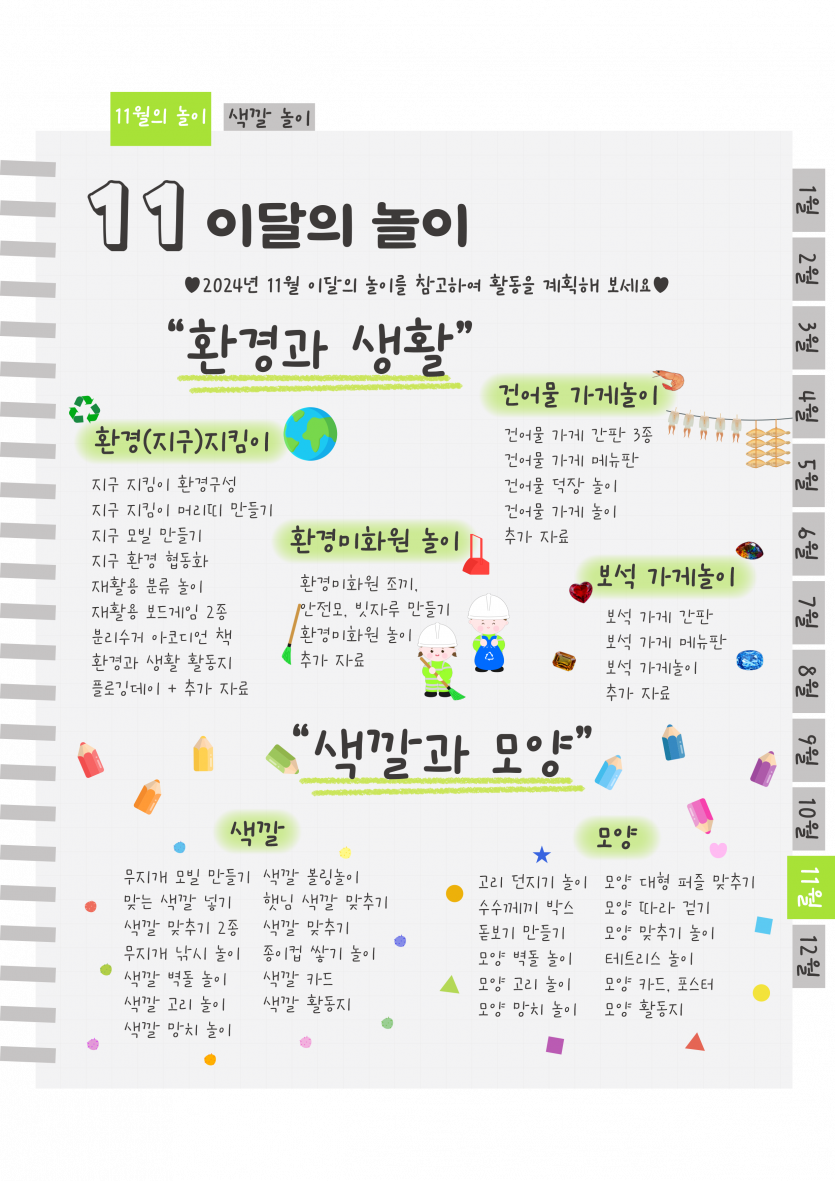 11월의 놀이
색깔 놀이
11 이달의 놀이
♥2024년 11월 이달의 놀이를 참고하여 활동을 계획해 보세요♥
“환경과 생활”
환경(지구)지킴이
지구 지킴이 환경구성
지구 지킴이 머리띠 만들기
지구 모빌 만들기
지구 환경 협동화
재활용 분류 놀이
재활용 보드게임 2종
분리수거 아코디언 책
환경과 생활 활동지
플로깅데이 + 추가 자료
환경미화원 놀이
환경미화원 조끼,
안전모, 빗자루 만들기
환경미화원 놀이
추가 자료
건어물 가게놀이
건어물 가게 간판 3종
건어물 가게 메뉴판
건어물 덕장 놀이
건어물 가게 놀이
추가 자료
보석 가게놀이
보석 가게 간판
보석 가게 메뉴판
보석 가게놀이
추가 자료
“색깔과 모양”
색깔
무지개 모빌 만들기
맞는 색깔 넣기
색깔 맞추기 2종
무지개 낚시 놀이
색깔 벽돌 놀이
색깔 고리 놀이
색깔 망치 놀이
색깔 볼링놀이
햇님 색깔 맞추기
색깔 맞추기
종이컵 쌓기 놀이
색깔 카드
색깔 활동지
모양
고리 던지기 놀이
수수께끼 박스
돋보기 만들기
모양 벽돌 놀이
모양 고리 놀이
모양 망치 놀이
모양 대형 퍼즐 맞추기
모양 따라 걷기
모양 맞추기 놀이
테트리스 놀이
모양 카드, 포스터
모양 활동지
1월
2월
3월
4월
5월
6월
7월
8월
9월
10월
11월
12월